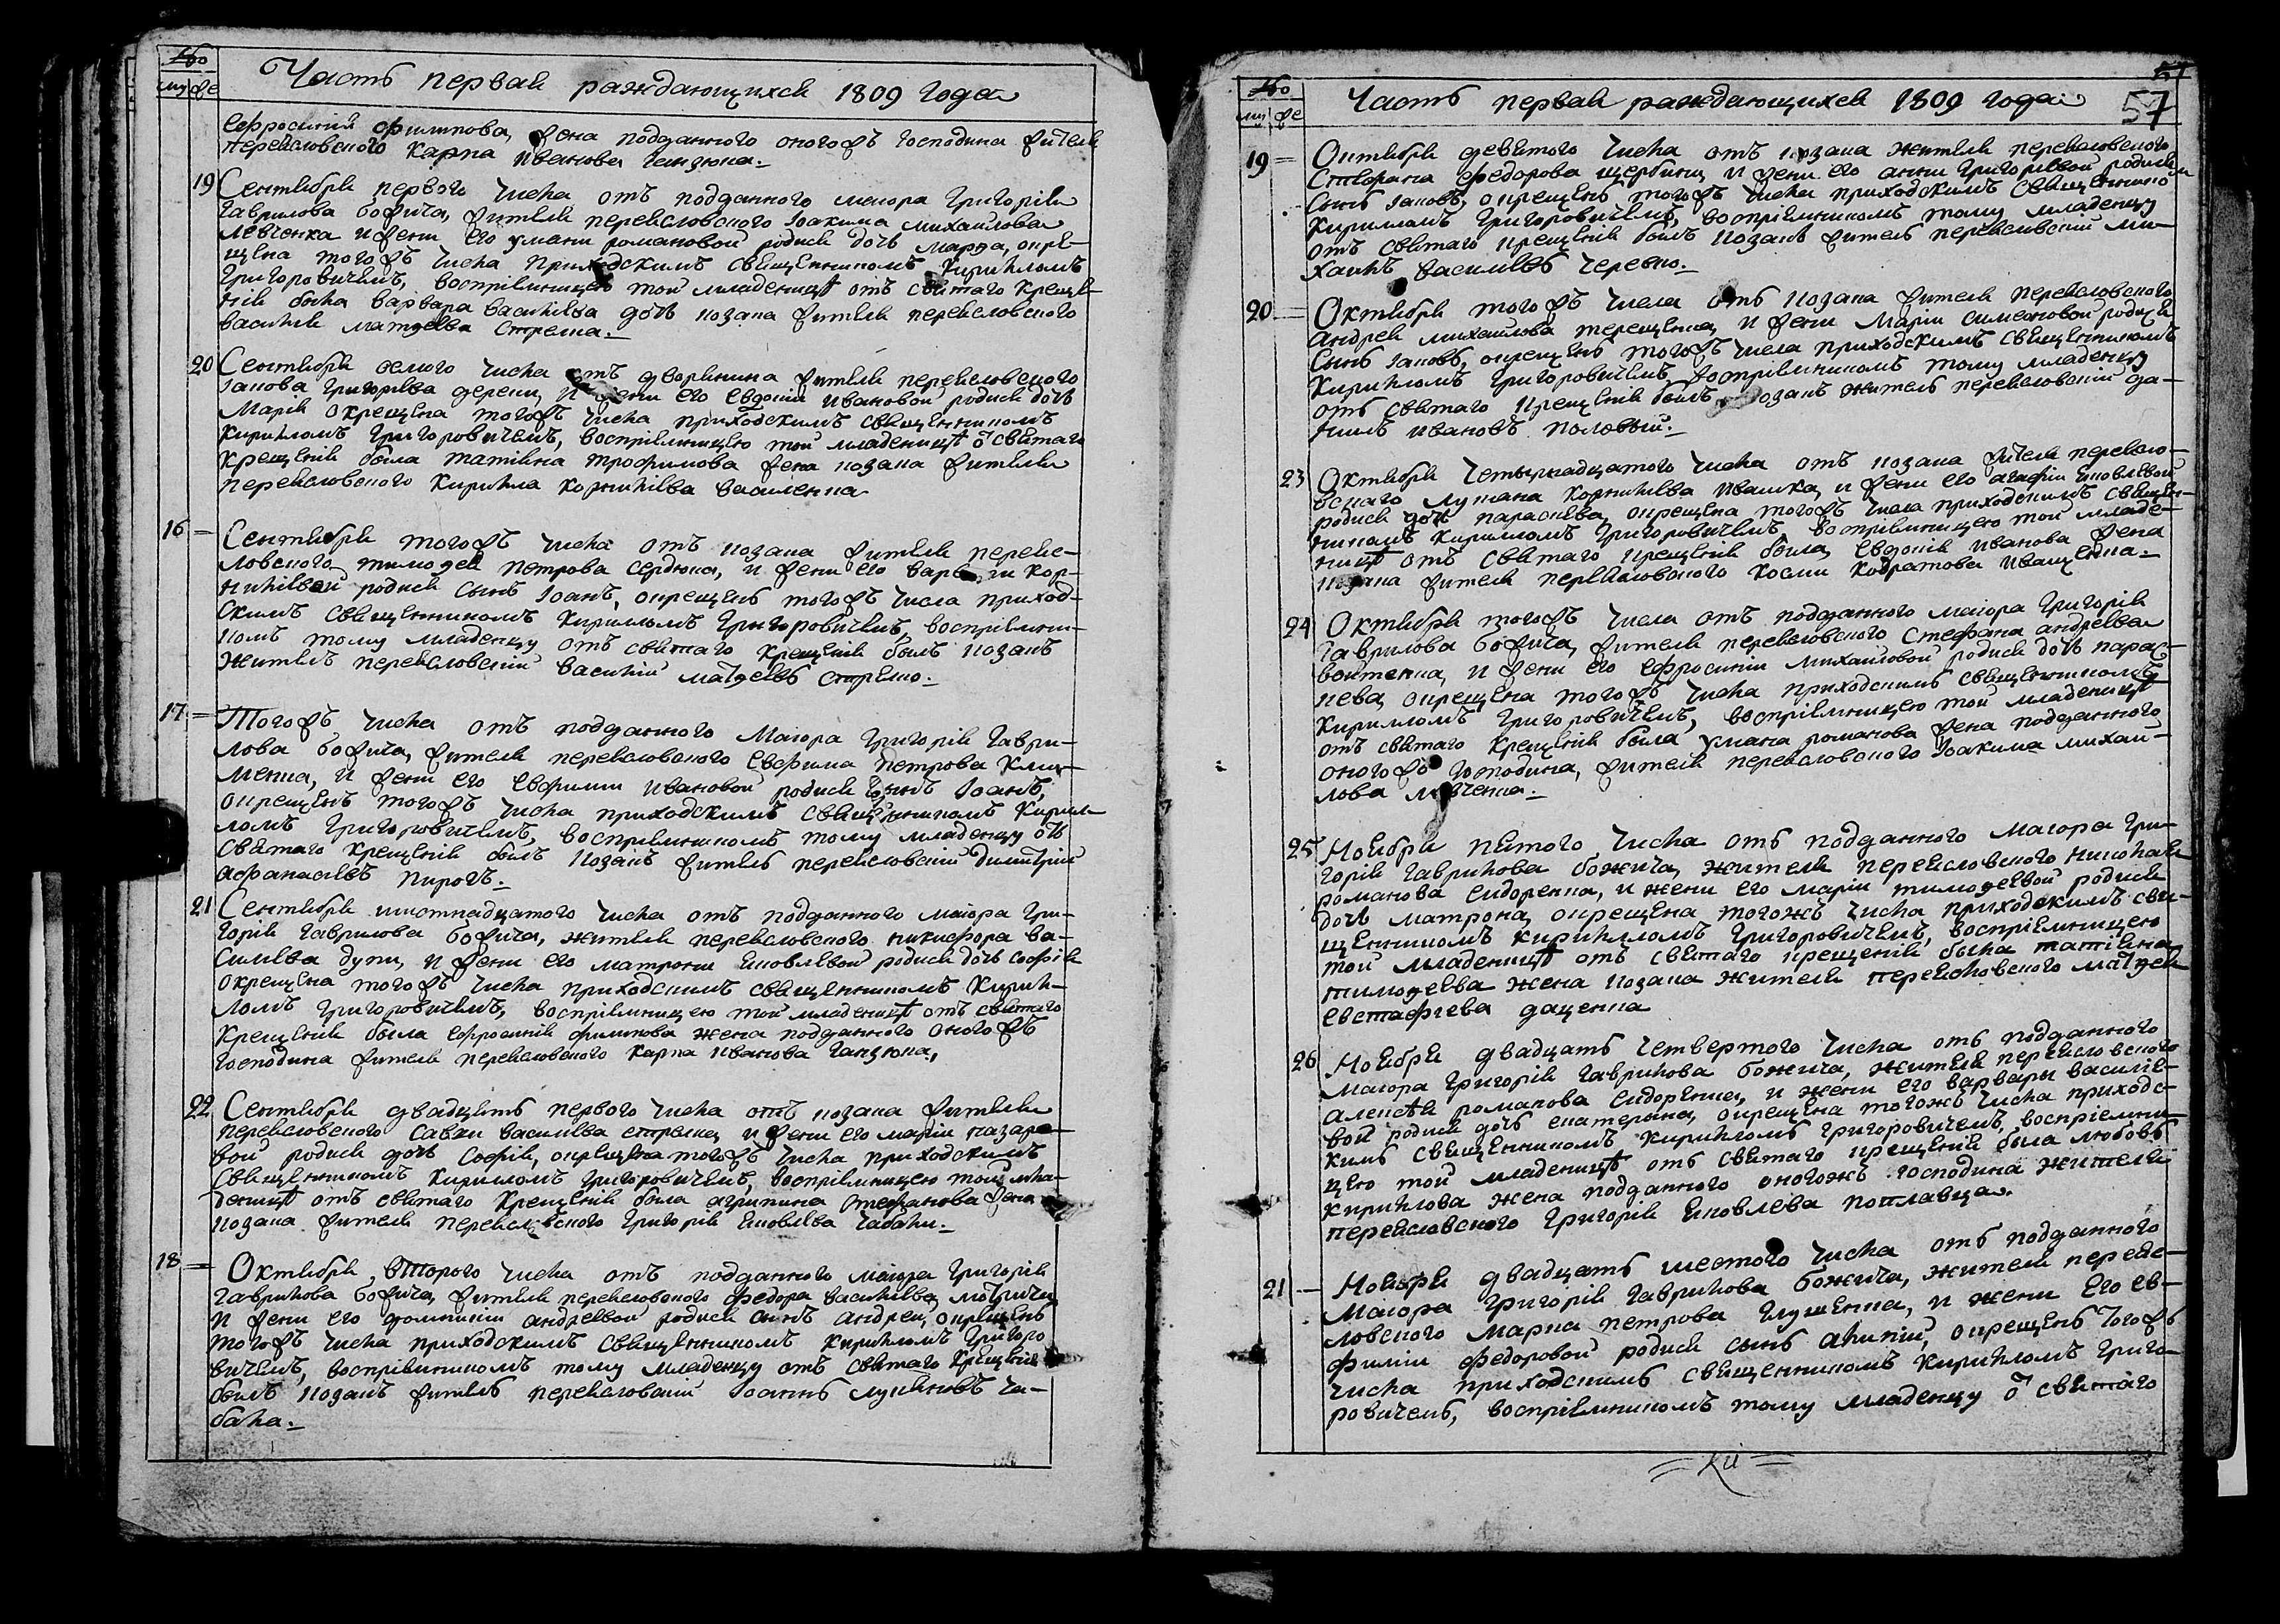 №
му фе
Часть первая раждающихся 1809 года
Ефросиния Филипова, жена подданного оногожъ господина жителя
переясловского Карпа Иванова Ганзюка.
19 Сентября первого числа отъ подданного маиора Григорія
Гаврилова Божича, жителя переясловского Іоакима Михаилова
Левченка и жени его Умани Романовой родися дочь Марѳа, окре-
щена тогожъ числа приходскимъ священникомъ Кирилломъ
Григоровичемъ, воспріемницею той младеницѣ отъ святаго креще-
нія была Варвара Васильева дочь козака жителя переясловского
Василія Матѳеева Стрелка.
20 Сентября семого числа отъ дворянина жителя переясловского
Іакова Григорьева и жени его Евдокіи Ивановой родися дочь
Марія окрещена тогожъ числа приходскимъ священникомъ
Кирилломъ Григоровичемъ, воспріемницею той младеницѣ ѿ святаго
крещенія была Татіяна Трофимова жена козака жителя
переясловского Кирилла Корнильева Василенка
16 Сентября тогожъ числа отъ козака жителя переяс-
ловского Тимоѳея Петрова Сердюка, и жени его Варвари Кор-
нильевой родися сынъ Іоанъ, окрещенъ тогожъ числа приход-
скимъ священникомъ Кирилломъ Григоровичемъ, воспріемни-
комъ тому младенцу отъ святаго крещенія былъ козакъ
житель переясловскій Василій Матѳеевъ Стрелко.
17 Тогожъ числа отъ подданного маиора Григорія Гаври-
лова Божича, жителя переясловского Евфима Петрова Кли-
менка, и жени его Евфимии Ивановой родися сынъ Іоанъ,
окрещенъ тогожъ числа приходскимъ священникомъ Кирил-
ломъ Григоровичемъ, воспріемникомъ тому младенцу отъ
святаго крещенія былъ козакъ житель переясловскій Димитрій
Афанасіевъ Пирогъ.
21 Сентября шестнадцатого числа отъ подданного маіора Гри-
горія Гаврилова Божича, жителя переясловского Никифора Ва-
сильева и жени его Матрони Яковлевой родися дочь Софія
окрещена тогожъ числа приходскимъ священникомъ Кирил-
ломъ Григоровичемъ, воспріемницею той младеницѣ отъ святаго
крещенія была Ефросинія Филипова жена подданного оногожъ
господина жителя переясловского Карпа Иванова Ганзюка,
22 Сентября двадцять первого числа отъ козака жителя
переясловского Савки Васильева Стрелка, и жени его Маріи Назаро-
вой родися дочь Софія, окрещена тогожъ числа приходскимъ
священникомъ Кирилломъ Григоровичемъ, воспріемницею той мла-
деницѣ отъ святаго крещенія была Агрипина Стефанова жена
козака жителя переясловского Григорія Яковлева Чабали.
18 Октября второго числа отъ подданного маіора Григорія
Гаврилова Божича, жителя переясловского Федора Васильева
и жени его Домникіи Андреевой родися синъ Андрей, окрещенъ
тогожъ числа приходскимъ священникомъ Кирилломъ Григоро
вичемъ, воспріемникомъ тому младенцу отъ святаго крещенія
былъ козакъ житель переясловскій Іоаннъ Лукяновъ Ча-
бала.
№
му фе
Часть первая раждающихся 1809 года
57
19 Октября девятого числа отъ козака жителя переясловского
Стефана Федорова Щербини и жени его Анни Григорьевой родися
сынъ Іаковъ, окрещенъ тогожъ числа приходскимъ священнико
Кирилломъ Григоровичемъ, воспріемникомъ тому младенцу
отъ святаго крещенія былъ козакъ житель переясловскій Ми-
хаилъ Васильевъ Черевко.
20 Октября тогожъ числа отъ козака жителя переясловского
Андрея Михаилова Терещенка, и жени Маріи Симеоновой родися
сынъ Іаковъ, окрещенъ тогожъ числа приходскимъ священникомъ
Кирилломъ Григоровичемъ, воспріемникомъ тому младенцу
отъ святаго крещенія былъ козакъ житель переясловскій Да-
ниилъ Ивановъ Половый.
23 Октября четырнадцатого числа отъ козака жителя переясло-
вскаго Лукяна Корнильева Ивашка, и жени его Агафіи Яковлевой
родися дочь Параскева, окрещена тогожъ числа приходскимъ священ-
никомъ Кирилломъ Григоровичемъ, воспріемницею той младе-
ницѣ отъ святаго крещенія была Евдокія Иванова жена
козака жителя переясловского Космы Кодратова Иващенка.
24 Октября тогожъ числа отъ подданного маіора Григорія
Гаврилова Божича, жителя переясловского Стефана Андреева
Войтенка, и жени его Ефросиніи Михаиловой родися дочь Парас-
кева, окрещена тогожъ числа приходскимъ священникомъ
Кирилломъ Григоровичемъ, воспріемницею той младеницѣ
отъ святаго крещенія была Умана Романова жена подданного
оногожъ господина, жителя переясловского Іоакима Михаи-
лова Левченка.
25 Ноября пятого числа отъ подданного маіора Гри-
горія Гаврилова Божича, жителя переясловского Николая
Романова Сидоренка, и жени его Маріи Тимоѳеевой родися
дочь Матрона, окрещена тогожъ числа приходскимъ свя-
щенникомъ Кирилломъ Григоровичемъ, воспріемницею
той младеницѣ отъ святаго крещенія была Татіяна
Тимоѳеева жена козака жителя переясловского Матѳея
Евстафиева Даценка
26 Ноября двадцать четвертого числа отъ подданного
маіора Григорія Гаврилова Божича, жителя переясловского
Алексѣя Романова Сидоренка, и жени его Варвары Василіе-
вой родися дочь Екатерина, окрещена тогожъ числа приходс-
кимъ священникомъ Кирилломъ Григоровичемъ, воспріемни-
цею той младеницѣ отъ святаго крещенія была Любовъ
Кирилова жена подданного оногожъ господина жителя
переясловского Григорія Яковлева Поплавца.
21 Ноября двадцать шестого числа отъ подданного
маіора Григорія Гаврилова Божича, жителя переяс-
ловского Марка Петрова Глущенка, и жени его Ев-
фиміи Федоровой родися сынъ Алипій, окрещенъ тогожъ
числа приходскимъ священникомъ Кирилломъ Григо-
ровичемъ, воспріемникомъ тому младенцу ѿ святаго